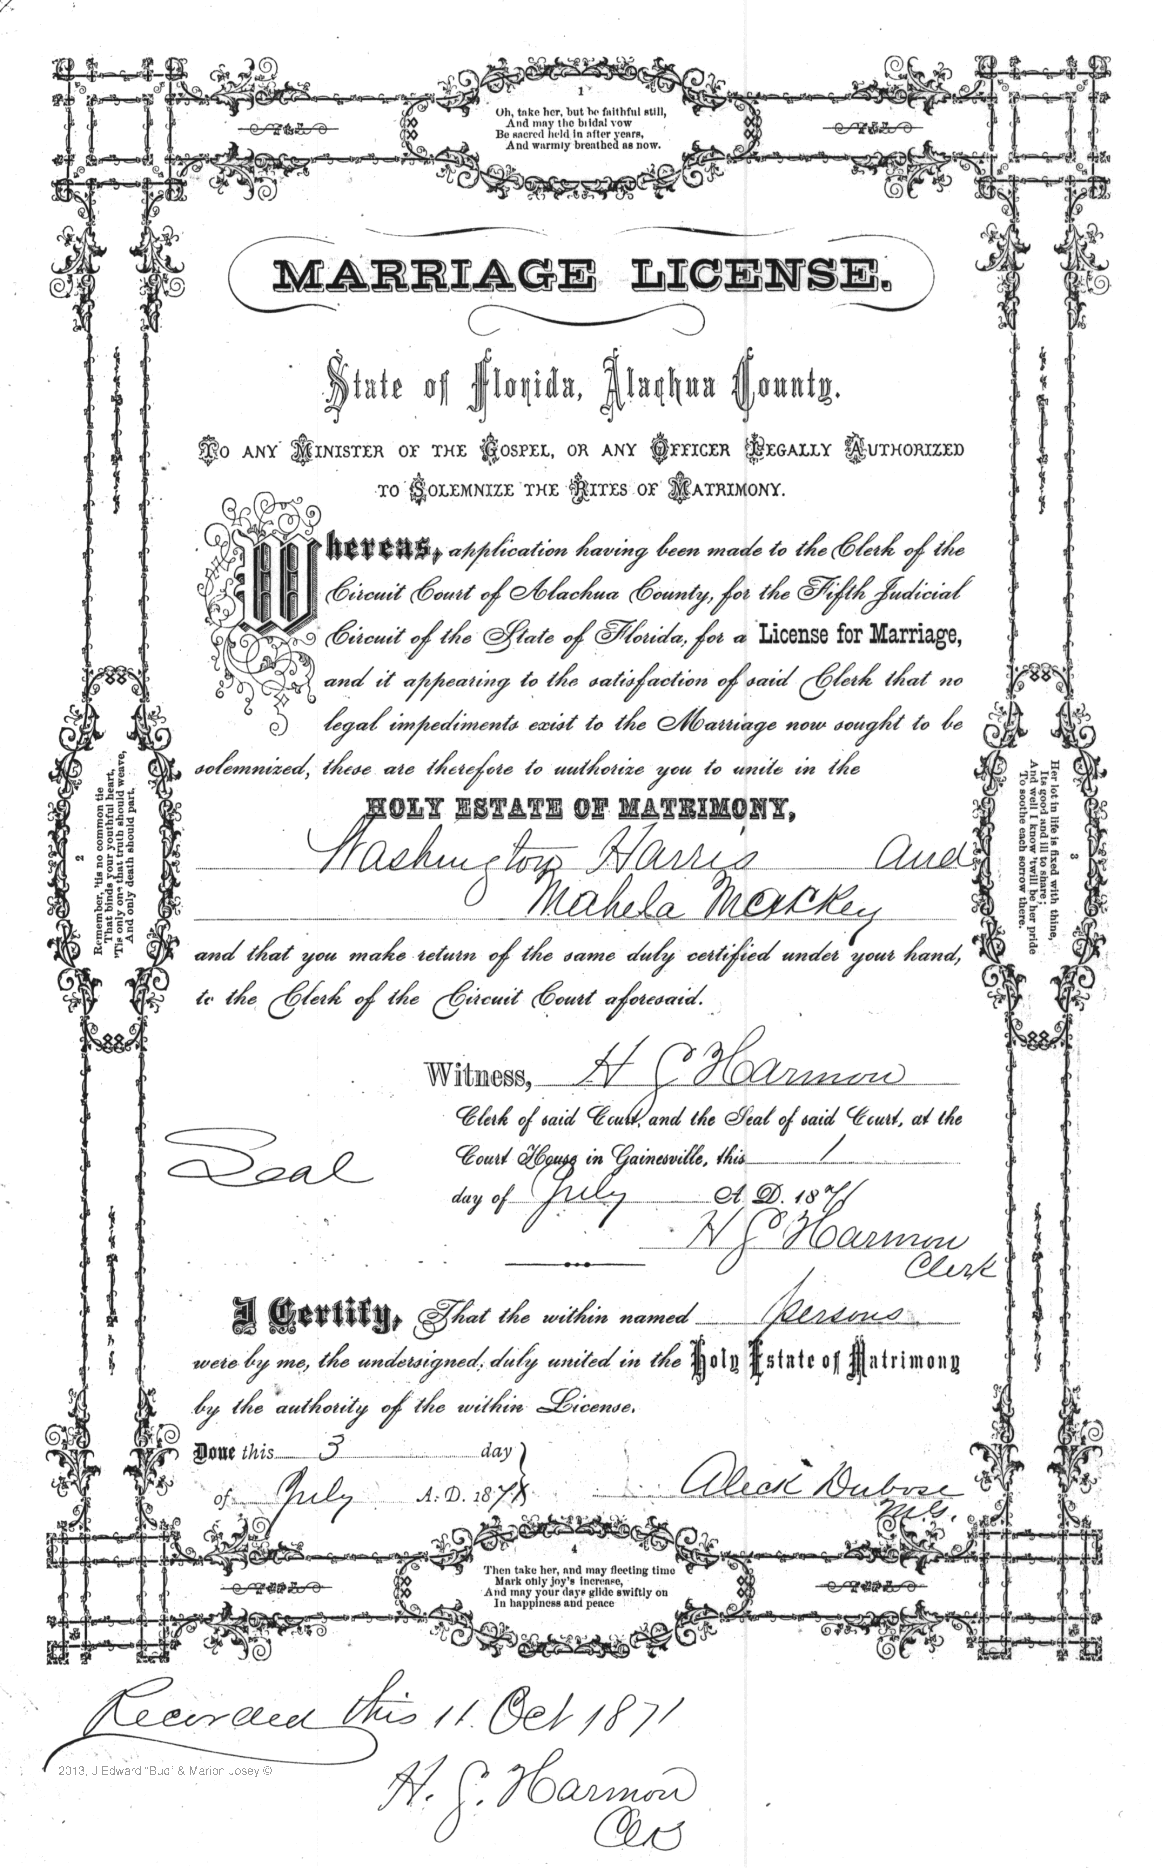 1
Oh, take her, but be faithful still,
And may the bridal vow
Be sacred held in after years,
And warmly breathed as now.
MARRIAGE LICENSE.
State of Florida, Alachua County.
TO ANY MINISTER OF THE GOSPEL, OR ANY OFFICER LEGALLY AUTHORIZED
TO SOLEMNIZE THE RITES OF MATRIMONY.
Whereas, application having been made to the Clerk of the
Circuit Court of Alachua County, for the Fifth Judicial
Circuit of the State of Florida, for a License for Marriage,
and it appearing to the satisfaction of said Clerk that no
legal impediments exist to the Marriage now sought to be
solemnized, these are therefore to authorize you to unite in the
HOLY ESTATE OF MATRIMONY,
Washington Harris and
Mahela Mackey
and that you make return of the same duly certified under your hand,
to the Clerk of the Circuit Court aforesaid.
2
Remember, 'tis no common tie
That binds your youthful heart,
'Tis only one that truth should weave,
And only death should part.
3
Her lot in life is fixed with thine,
Its good and ill to share;
And well I know 'twill be her pride
To soothe each sorrow there.
Witness, H G Harmon
Clerk of said Court, and the Seal of said Court, at the
Court House in Gainesville, this 1
Seal
day of July A. D. 1871
H G Harmon
Clerk
I Certify, That the within named persons
were by me, the undersigned, duly united in the Holy Estate of Matrimony
by the authority of the within License.
Done this 3 day
of July A. D. 1871
Aleck Dubose
M.G.
4
Then take her, and may fleeting time
Mark only joy's increase,
And may your days glide swiftly on
In happiness and peace
Recorded this 11 Oct 1871
2013, J Edward "Bud" & Marion Josey ©
H. G. Harmon
Clk